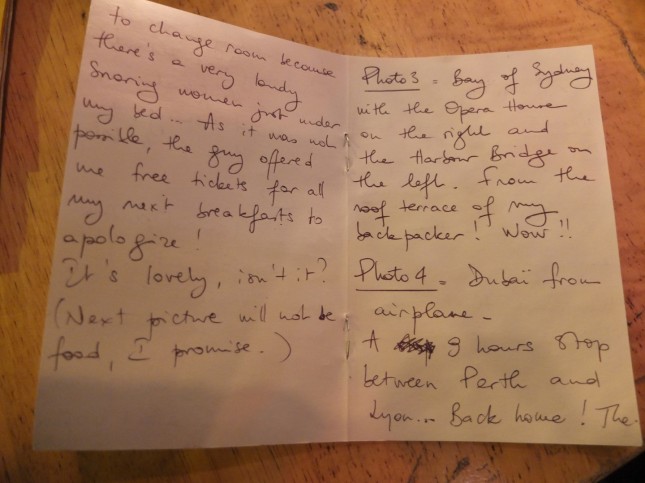 to change room because
there's a very loudy
snoring women just under
my bed... As it was not
possible, the guy offered
me free tickets for all
my next breakfasts to
apologize!
It's lovely, isn't it?
(Next picture will not be
food, I promise.)
Photo 3 = Bay of Sydney
with the Opera House
on the right and
the Harbour Bridge on
the left. From the
roof terrace of my
backpacker! Wow!!
Photo 4 = Dubaï from
airplane.
A 9 hours stop
between Perth and
Lyon... Back home! The